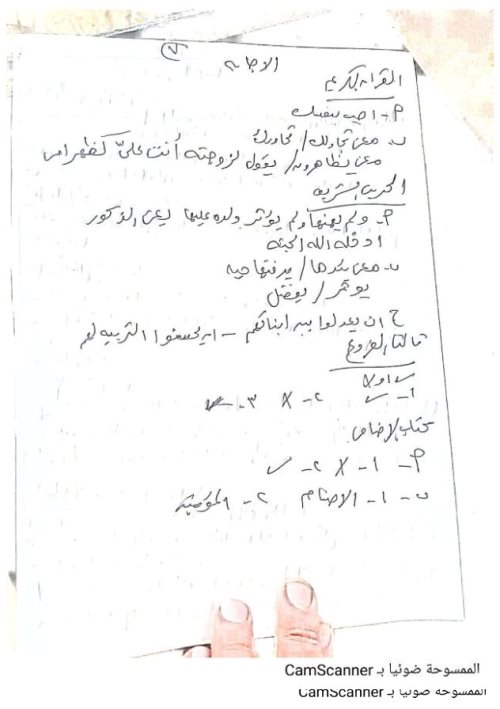 ٧
الاجابه
القران الكريم
أ- اجب بنفسك
ب- معنى تجادلك / تحاورك
معنى يظاهرون / يقول لزوجته أنت عليّ كظهر امي
الحديث الشريف
أ- ولم يهنها ولم يؤثر ولده عليها يعني الذكور
ادخله الله الجنه
ب- معنى يئدها / يدفنها حيه
يؤثر / يفضل
ج ان يعدلوا بين ابنائهم - ان يحسنوا التربيه لهم
ثالثا الفروع
س اولا
١- ✓ ٢- X ٣- ✓
كتاب الاضافي
أ- ١- X ٢- ✓
ب- ١- الاصنام ٢-
الممسوحة ضوئيا بـ CamScanner
الممسوحة ضوئيا بـ CamScanner